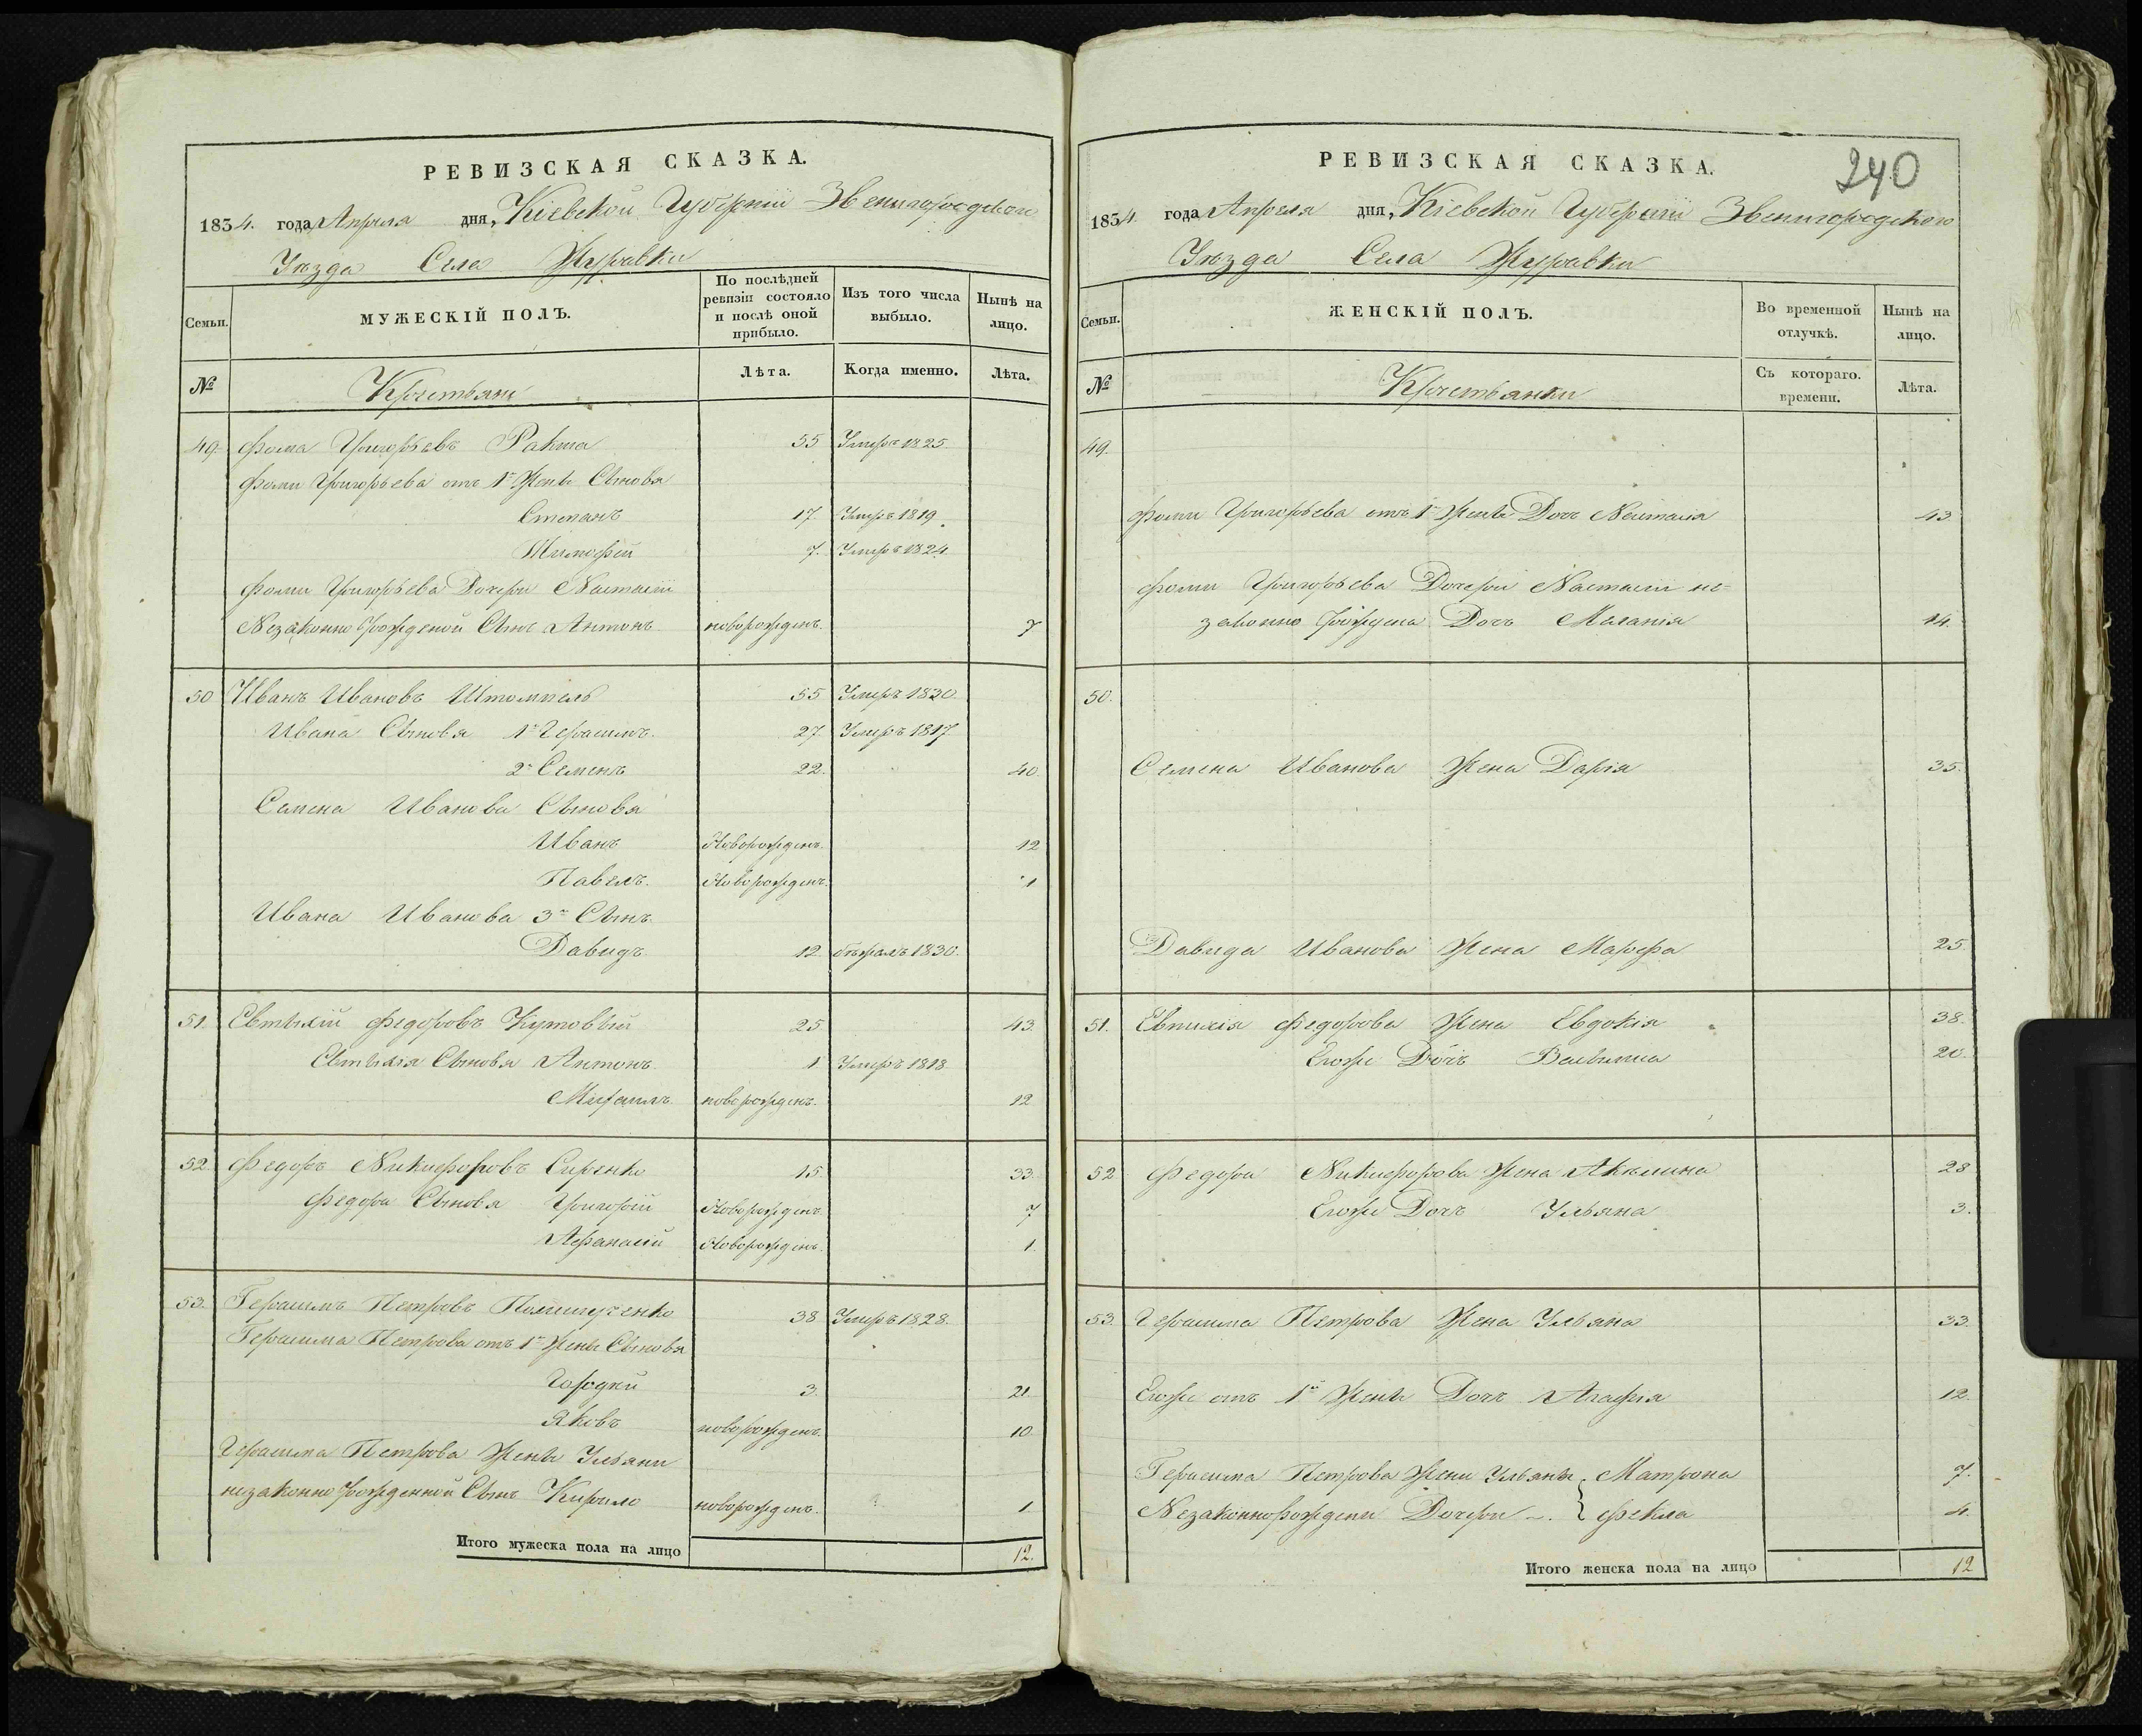 РЕВИЗСКАЯ СКАЗКА.
1834. года Апреля дня, Кіевской Губерніи Звенигородского
Уѣзда Села Журавки
Семьи.
МУЖЕСКІЙ ПОЛЪ.
По послѣдней ревизіи состояло и послѣ оной прибыло.
Изъ того числа выбыло.
Нынѣ на лицо.
№
Крестьяни
Лѣта.
Когда именно.
Лѣта.
49. Фома Григорьевъ Ракша 55 Умеръ 1825.
Фоми Григорьева отъ 1й Жены Сыновя
Степанъ 17. Умеръ 1819.
Тимофей 7. Умеръ 1824.
Фоми Григорьева Дочери Настасіи
Незаконно рожденой Сынъ Антонъ новорожденъ. 7
50 Иванъ Ивановъ Штомпель 55 Умеръ 1830.
Ивана Сыновя 1й Герасимъ. 27. Умеръ 1817
2й Семенъ 22. 40.
Семена Иванова Сыновя
Иванъ Новорожденъ. 12
Павелъ. Новорожденъ. 1
Ивана Иванова 3й Сынъ.
Давидъ. 12. бѣжалъ 1830.
51. Евтыхій Федоровъ Кутовый 25 43.
Евтыхія Сыновя Антонъ. 1 Умеръ 1818
Михаилъ. новорожденъ. 12
52. Федоръ Никифоровъ Сиренко 15. 33.
Федора Сыновя Григорій Новорожденъ. 7
Афанасій Новорожденъ. 1.
53. Герасимъ Петровъ 38 Умеръ 1828.
Герасима Петрова отъ 1й Жены Сыновя
Гордѣй 3. 21.
Яковъ новорожденъ. 10
Герасима Петрова Жены Ульяни
незаконно рожденной Сынъ Кирило новорожденъ. 1
Итого мужеска пола на лицо 12.
240
РЕВИЗСКАЯ СКАЗКА.
1834. года Апреля дня, Кіевской Губерніи Звенигородского
Уѣзда Села Журавки
Семьи.
ЖЕНСКІЙ ПОЛЪ.
Во временной отлучкѣ.
Нынѣ на лицо.
№
Крестьянки
Съ котораго. времени.
Лѣта.
49.
Фоми Григорьева отъ 1й Жены Дочъ Настасія 43
Фоми Григорьева Дочери Настасіи не=
законно рождена Дочъ Маланія 14.
50.
Семена Иванова Жена Дарія 35.
Давида Иванова Жена Марфа 25.
51. Евтихія Федорова Жена Евдокія 38.
Егоже Дочъ 20.
52 Федора Никифорова Жена Акилина 28
Егоже Дочъ Ульяна 3.
53. Герасима Петрова Жена Ульяна 33.
Егоже отъ 1й Жены Дочъ Агафія 12.
Герасима Петрова Жени Ульяны { Матрона 7.
Незаконнорождени Дочери -. { Фекла 4.
Итого женска пола на лицо 12